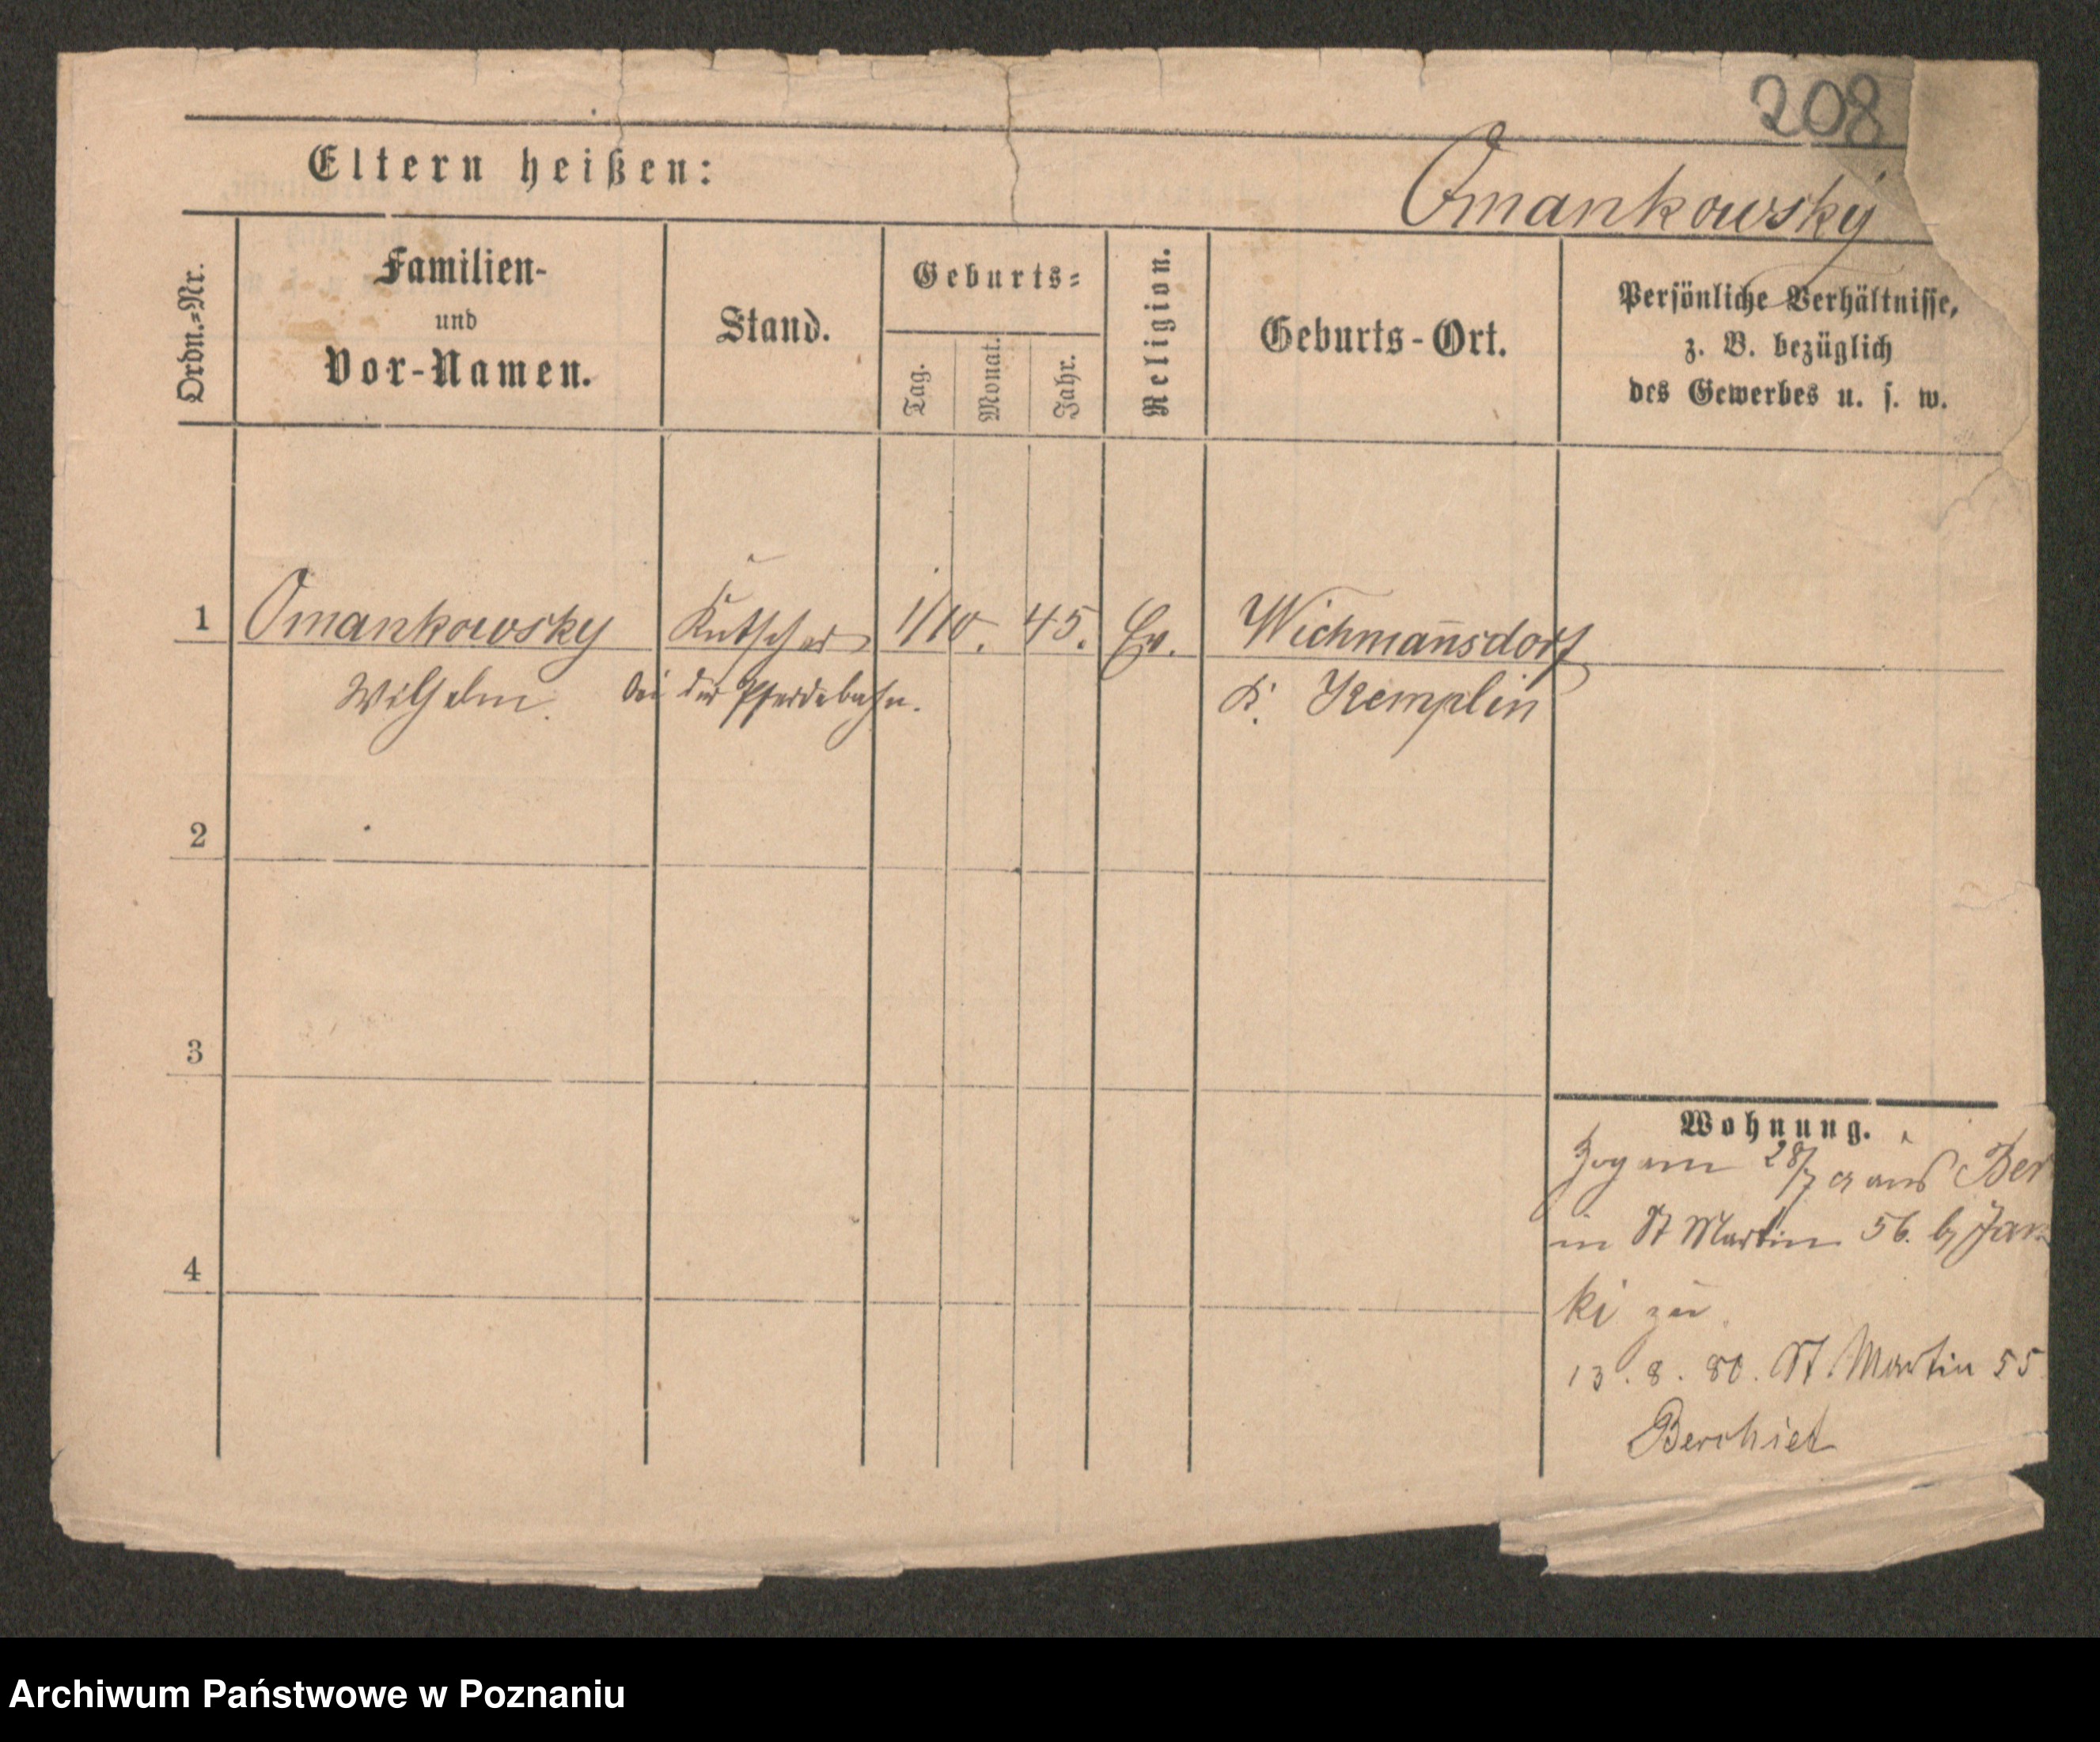 208
Eltern heißen:
Omankowsky
Ordn.=Nr.
Familien-
und
Vor-Namen.
Stand.
Geburts=
Tag.
Monat.
Jahr.
Religion.
Geburts-Ort.
Persönliche Verhältnisse,
z. B. bezüglich
des Gewerbes u. s. w.
1 Omankowsky Kutscher 1/10. 45. Ev. Wichman̄sdorf
Wilhelm. bei der Pferdebahn. K. Kemplin
2
3
4
Wohnung.
Zog am 28/7 aus Ber
in St Martin 56. b/ Jan
ki zu
13. 8. 80. St. Martin 55
Archiwum Państwowe w Poznaniu